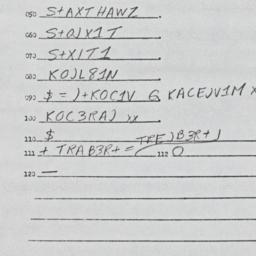 050 S+AXT HAWZ
060 S+OJX1T
070 S+XIT1
080 KOJL81N
090 $ = J+KOC1V & KACEJV1M X
100 KOC3RAJ XX
110 $ TREJB3R+J
111 + TRAB3R+ = 112 O
120 —